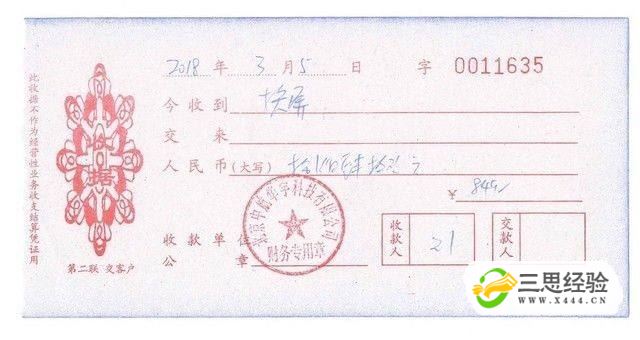 2018 年 3 月 5 日 字 0011635
今收到 换屏
交来
人民币(大写)
¥ 845
收款单位
公章
收款人 21
交款人
财务专用章
收据
第二联 交客户
此收据不作为经营性业务收支结算凭证用
三思经验
WWW.X444.CN